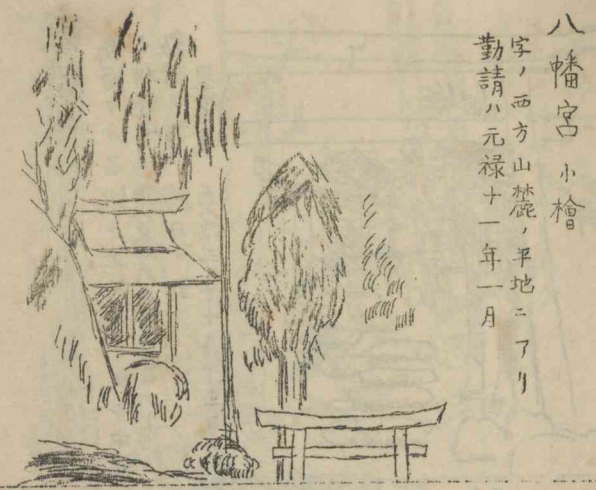 八幡宮 小檜
字ノ西方山麓ノ平地ニアリ
勤請ハ元禄十一年一月